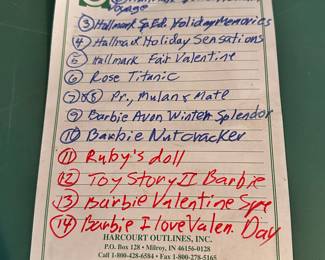 Voyage
③ Hallmark Sp Edi Yoliday Memories
④ Hallmark Holiday Sensations
⑤ Hallmark Fair Valentine
⑥ Rose Titanic
⑦+⑧ Pr. Mulan & Mate
⑨ Barbie Avon Winter Splendor
⑩ Barbie Nutcracker
⑪ Ruby's doll
⑫ Toy Story II Barbie
⑬ Barbie Valentine Spe
⑭ Barbie I love Valen. Day
HARCOURT OUTLINES, INC.
P.O. Box 128 • Milroy, IN 46156-0128
Call 1-800-428-6584 • Fax 1-800-278-5165